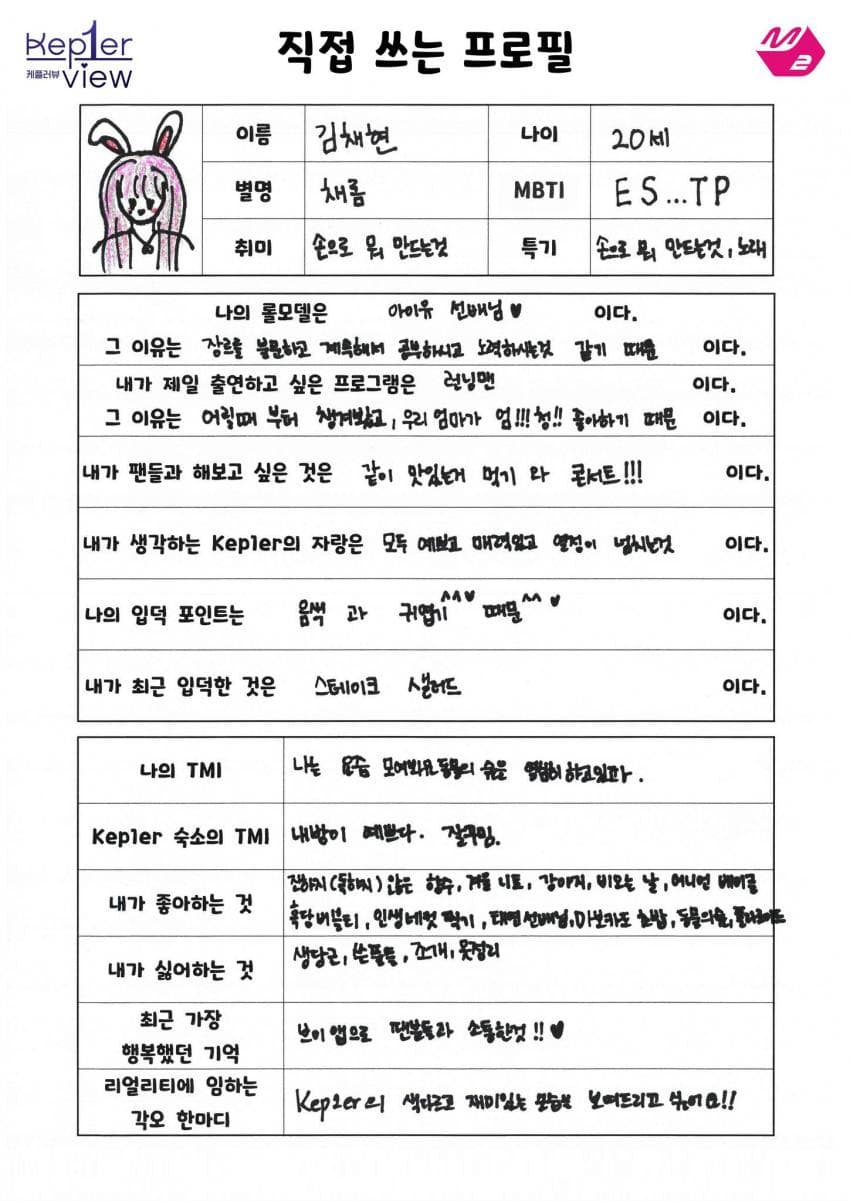 Kep1er
케플러뷰 view
직접 쓰는 프로필
M2
이름 김채현 나이 20세
별명 채롬 MBTI ES...TP
취미 손으로 뭐 만드는것 특기 손으로 뭐 만드는것, 노래
나의 롤모델은 아이유 선배님♥ 이다.
그 이유는 장르를 불문하고 계속해서 공부하시고 노력하시는것 같기 때문 이다.
내가 제일 출연하고 싶은 프로그램은 런닝맨 이다.
그 이유는 어릴때 부터 챙겨봤고, 우리 엄마가 엄!!!청!! 좋아하기 때문 이다.
내가 팬들과 해보고 싶은 것은 같이 맛있는거 먹기 와 콘서트!!! 이다.
내가 생각하는 Kep1er의 자랑은 모두 예쁘고 매력있고 열정이 넘치는것 이다.
나의 입덕 포인트는 음색 과 귀엽기^^♥ 때문^^♥ 이다.
내가 최근 입덕한 것은 스테이크 샐러드 이다.
나의 TMI 나는 요즘 모여봐요동물의 숲을 열심히 하고있다.
Kep1er 숙소의 TMI 내방이 예쁘다. 잘꾸밈.
내가 좋아하는 것 진하지(독하지) 않은 향수, 겨울 니트, 강아지, 비오는 날, 어니언 베이글
흑당버블티, 인생네컷 찍기, 태연선배님, 아보카도 초밥, 동물의숲, 폴라로이드
내가 싫어하는 것 생당근, 쓴풀들, 조개, 옷정리
최근 가장
행복했던 기억 브이앱으로 팬분들과 소통한것!! ♥
리얼리티에 임하는
각오 한마디 Kep1er의 색다르고 재미있는 모습을 보여드리고 싶어요!!